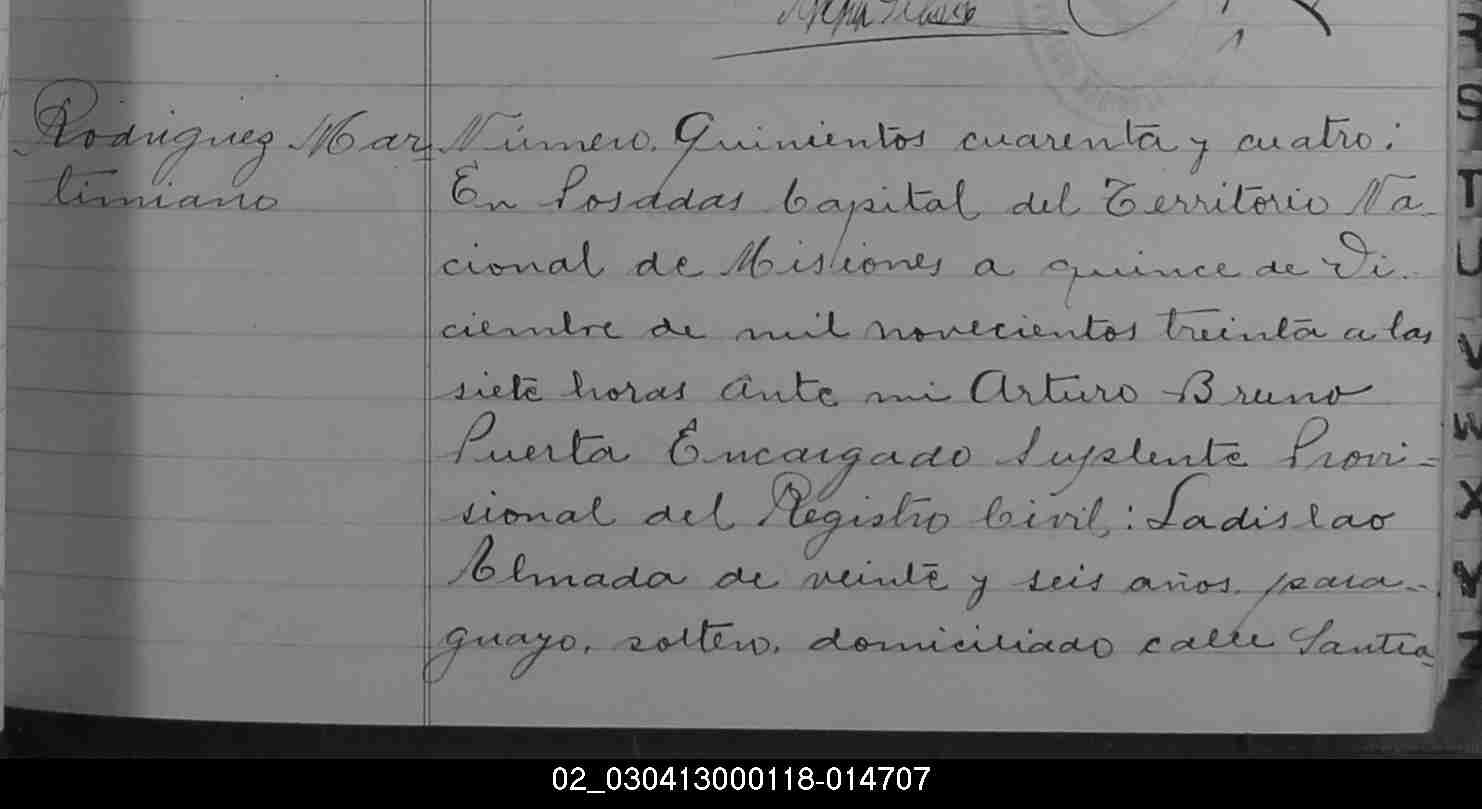 Rodriguez Mar_
timiano
Número. Quinientos cuarenta y cuatro:
En Posadas Capital del Territorio Na_
cional de Misiones a quince de Di_
ciembre de mil novecientos treinta a las
siete horas ante mi Arturo Bruno
Puerta Encargado Suplente Provi=
sional del Registro Civil: Ladislao
Almada de veinte y seis años. para_
guayo. soltero. domiciliado calle Santia_
S
T
U
V
W
X
Y
Z
02_030413000118-014707